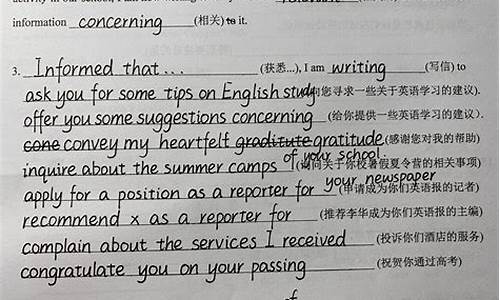 information concerning (相关) to it.
3. Informed that... (获悉...), I am writing (写信) to
ask you for some tips on English study (向您寻求一些关于英语学习的建议).
offer you some suggestions concerning (给你提供一些英语学习的建议).
convey my heartfelt graditute gratitude (感谢您对我的帮助)
inquire about the summer camps of your school. (询问关于你校暑假夏令营的相关事项)
apply for a position as a reporter for your newspaper (申请成为你们英语报的记者)
recommend x as a reporter for (推荐李华成为你们英语报的主编)
complain about the services I received (投诉你们酒店的服务)
congratulate you on your passing (祝贺你通过高考)
of